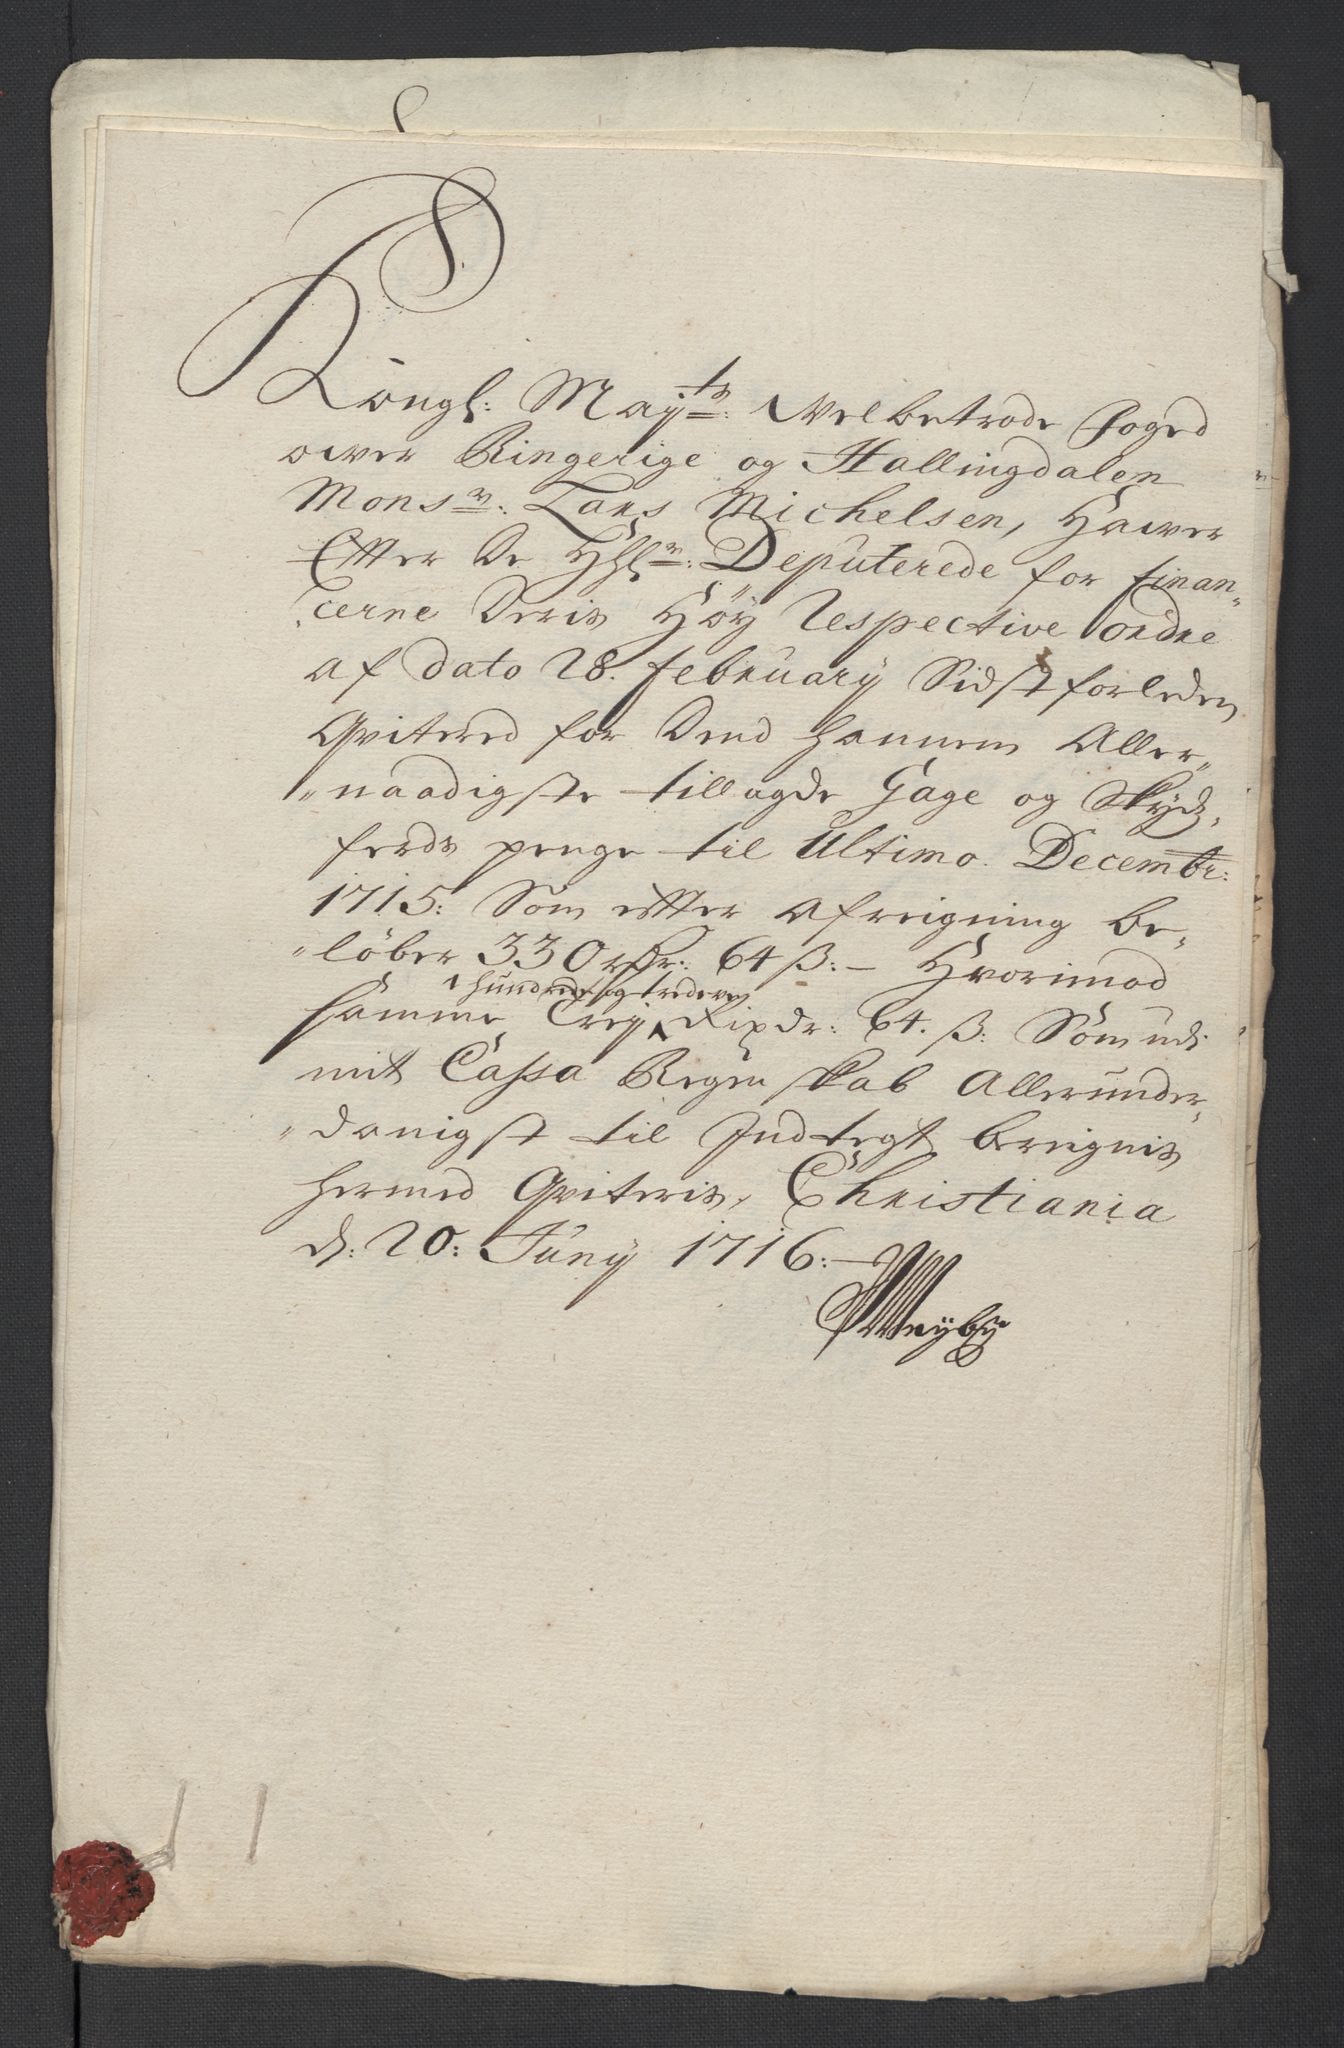 Kongl: Maÿts: Welbetrode Foged
ower Ringerige og Hallingdalen
Monsr: Lars Michelsen, Hawer
Efter De HHr: Deputerede for finan„
„cerne Deris Höÿ Respective Ordre
af dato 28. februarÿ Sidstforleden
Qvitered for Dend hannem Aller„
„naadigste tillagde Gage og Skÿdz„
ferds penge til Ultimo Decembr:
1715: Som efter afreigning be„
„löber 330 rdr: 64 ß:– Hvorimod
hundrede og tredeve
samme Treÿ Rixdr: 64. ß: Som udi
mit Cassa Regenskab Allerunder„
„danigst til Indtegt bereignis
hermed Qviteris, Christiania
d: 20: Junÿ 1716:–